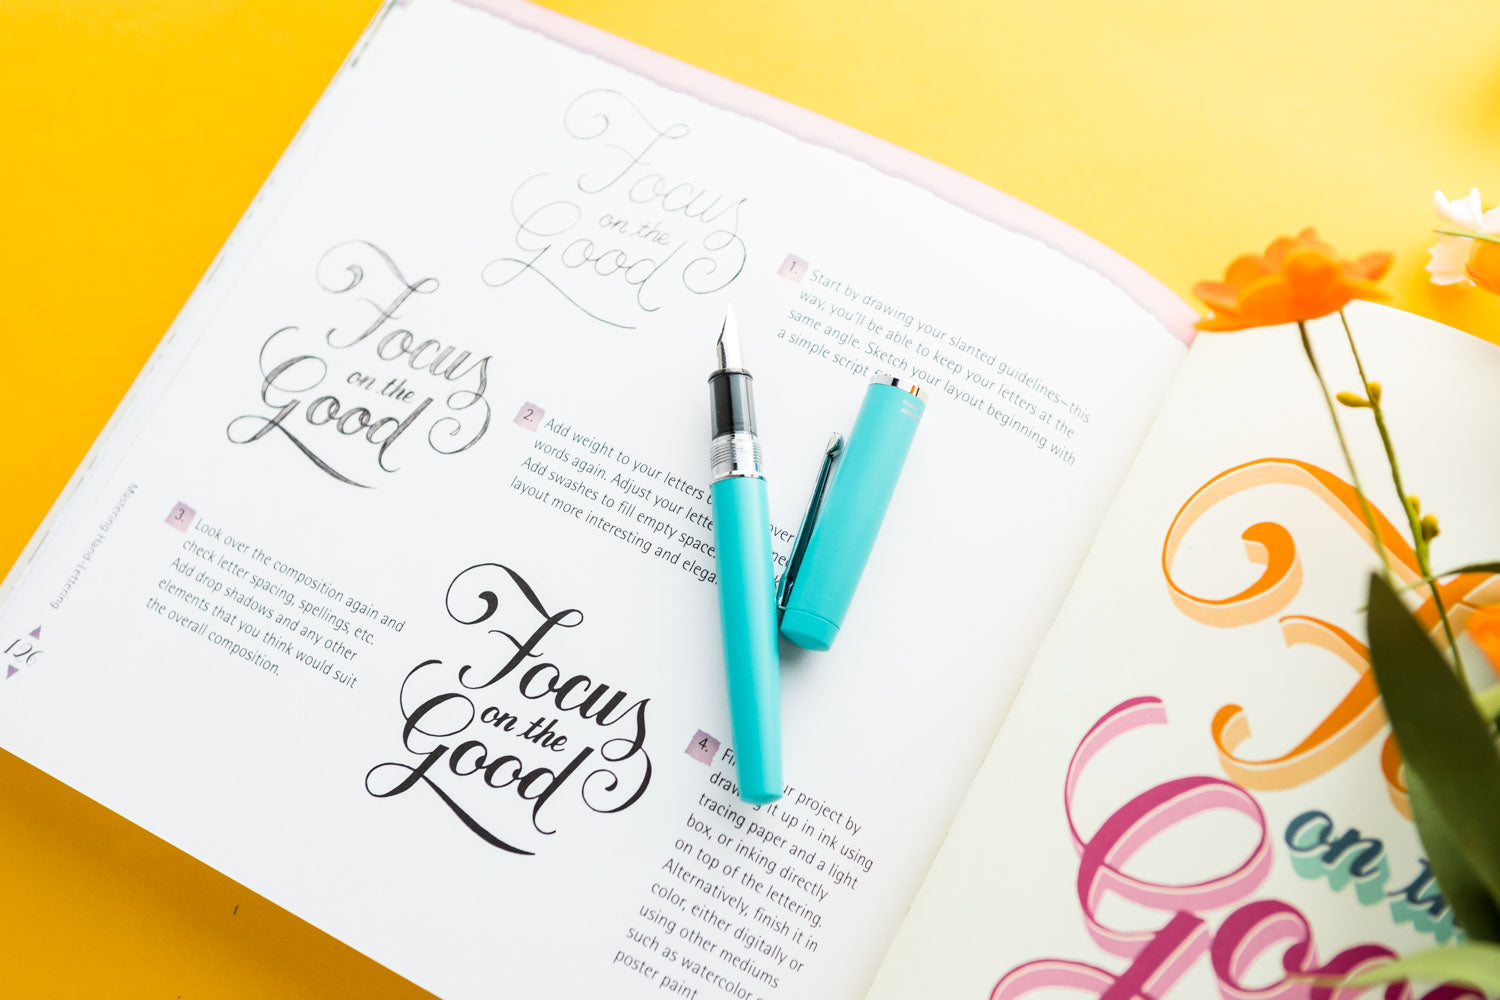 Focus
on the
Good
1. Start by drawing your slanted guidelines—this
way, you'll be able to keep your letters at the
same angle. Sketch your layout beginning with
a simple script
Focus
on the
Good
2. Add weight to your letters
words again. Adjust your
Add swashes to fill empty
layout more interesting and
3. Look over the composition again and
check letter spacing, spellings, etc.
Add drop shadows and any other
elements that you think would suit
the overall composition.
Focus
on the
Good
4. project by
it up in ink using
tracing paper and a light
box, or inking directly
on top of the lettering.
Alternatively, finish it in
color, either digitally or
using other mediums
such as watercolor
poster paint
Mastering Hand-Lettering
126
on
Good